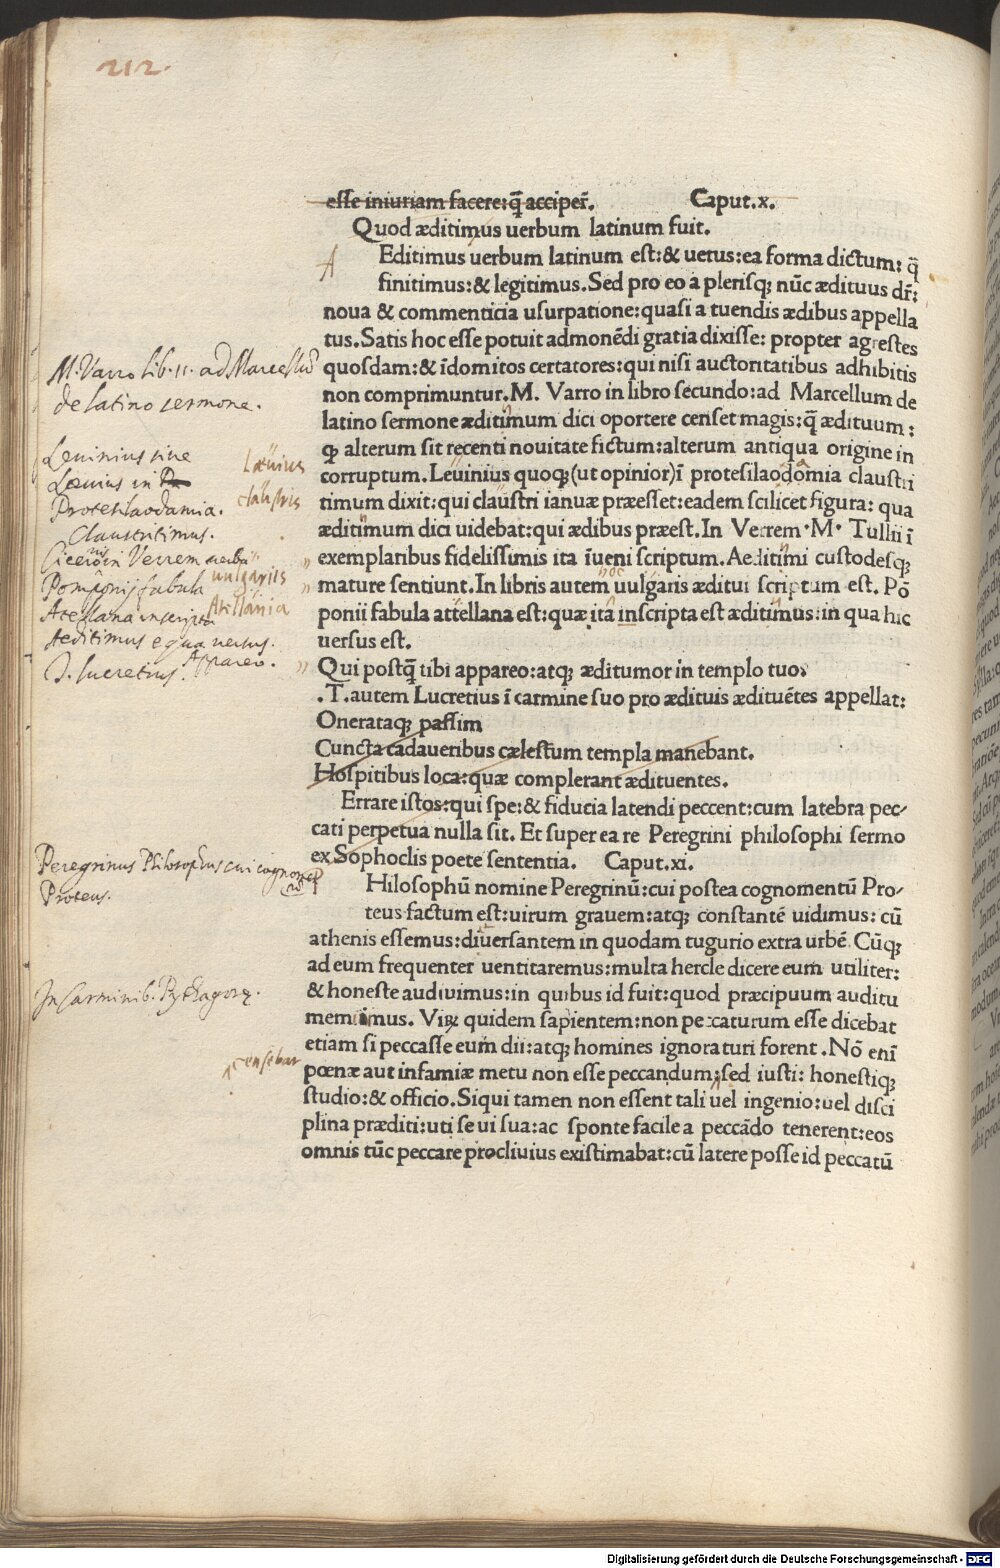 212.
esse iniuriam facere: q̃ acciper̃. Caput.x.
Quod æditimus uerbum latinum fuit.
A
Editimus uerbum latinum est: & uetus: ea forma dictum: q̃
finitimus: & legitimus. Sed pro eo a plerisq; nũc ædituus dr̃:
noua & commenticia usurpatione: quasi a tuendis ædibus appella
tus. Satis hoc esse potuit admonẽdi gratia dixisse: propter agrestes
quosdam: & ĩdomitos certatores: qui nisi auctoritatibus adhibitis
non comprimuntur. M. Varro in libro secundo: ad Marcellum de
latino sermone æditimum dici oportere censet magis: q̃ ædituum:
q alterum sit recenti nouitate fictum: alterum antiqua origine in
corruptum. Leuinius quoq; (ut opinior) ĩ protesilaodomia claustri
timum dixit: qui claustri ianuæ præesset: eadem scilicet figura: qua
æditimum dici uidebat: qui ædibus præest. In Verrem · M · Tullii ĩ
exemplaribus fidelissimis ita ĩueni scriptum. Aeditimi custodesq;
mature sentiunt. In libris autem uulgaris æditui scriptum est. Põ
ponii fabula attellana est: quæ ita inscripta est æditimus: in qua hic
uersus est.
Qui postq̃ tibi appareo: atq; æditumor in templo tuo.
.T. autem Lucretius ĩ carmine suo pro ædituis ædituẽtes appellat:
Onerataq; passim
Cuncta cadaueribus cælestum templa manebant.
Hospitibus loca: quæ complerant ædituentes.
Errare istos: qui spe: & fiducia latendi peccent: cum latebra pec-
cati perpetua nulla sit. Et super ea re Peregrini philosophi sermo
ex Sophoclis poete sententia. Caput.xi.
P
Hilosophũ nomine Peregrinũ: cui postea cognomentũ Pro-
teus factum est: uirum grauem: atq; constantẽ uidimus: cũ
athenis essemus: diuersantem in quodam tugurio extra urbẽ. Cũq;
ad eum frequenter uentitaremus: multa hercle dicere eum utiliter:
& honeste audiuimus: in quibus id fuit: quod præcipuum auditu
meminimus. Viꝝ quidem sapientem: non peccaturum esse dicebat
etiam si peccasse eum dii: atq; homines ignoraturi forent. Nõ enĩ
pœnæ aut infamiæ metu non esse peccandum; sed iusti: honestiq;
studio: & officio. Siqui tamen non essent tali uel ingenio: uel disci
plina præditi: uti se ui sua: ac sponte facile a peccãdo tenerent: eos
omnis tũc peccare procliuius existimabat: cũ latere posse id peccatũ
M. Varro lib. 11. ad Marcellũ
de latino sermone.
Leuinius siue
Læuius in
Protesilaodamia.
Læuius
claustris
Claustritimus.
Cicero in Verrem uerba
Pomponij fabula
uulgariis
Atellana inscripta
Atellania
Aeditimus e qua uersus.
T. Lucretius. Appareo.
Peregrinus Philosophus cui cognomen
Proteus.
In Carminib. Pythagoræ.
censebat
Digitalisierung gefördert durch die Deutsche Forschungsgemeinschaft - DFG